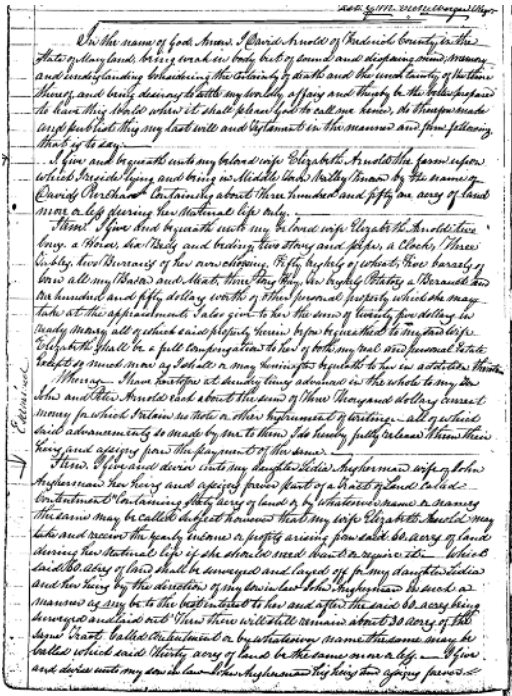 In the name of God, Amen. I David Arnold of Frederick County in the
State of Maryland, being weak in body but of sound and disposing mind, memory
and understanding considering the certainty of death and the uncertainty of the time
thereof, and being desirous to settle my worldly affairs and thereby be the better prepared
to leave this World when it shall please God to call me hence, do therefore make
and publish this my last will and Testament in the manner and form following,
that is to say.
I give and bequeath unto my beloved wife Elizabeth Arnold the farm upon
which I reside lying and being in Middle Town Valley Known by the name of
Davids Purchase Containing about three hundred and fifty one acres of land
more or less during her Natural life only.
Item. I give and bequeath unto my beloved wife Elizabeth Arnold two
Cows, a Horse, six Beds and beding, two stoves and pipe, a Clock, Three
Tables, two Bureau's of her own choosing, Fifty bushels of wheat, Five barrels of
Corn all my Bacon and Meat, three Tons Hay, ten bushels Potatoes a
one hundred and fifty dollars worth of other personal property which she may
take at the appraisment I also give to her the sum of twenty five dollars in
ready money, all of which said property herein before bequeathed to my said wife
Elizabeth shall be a full compensation to her of both my real and personal Estate
Except so much more as I shall or may hereinafter bequeath to her in addition
Whereas I have heretofore at sundry times advanced in the whole to my son
John and Peter Arnold each about the sum of Three Thousand dollars current
money for which I retain no note or other Instrument of writing all of which
said advancements so made by me to them I do hereby fully release them their
heirs and assigns from the payment of the same.
Item. I give and devise unto my daughter Lidia Angherman wife of John
Angherman her heirs and assigns forever part of a Tract of Land Called
Contentment Containing sixty acres of land or by whatever name or names
the same may be called subject however that my wife Elizabeth Arnold may
take and receive the yearly income or profits arising from said 60 acres of land
during her Natural life if she should need want or require it which
said 60 acres of land shall be surveyed and layed off for my daughter Lidia
and her heirs by the direction of my son in law John Angherman in such a
manner as my be to the best interest to her and after the said 60 acres being
surveyed and laid out Then there will still remain about 30 acres of the
same Tract Called Contentment or by whatsoever name the same may be
called which said Thirty acres of land be the same more or less I give
and devise unto my son in law John Angherman his heirs and assigns forever
Examined